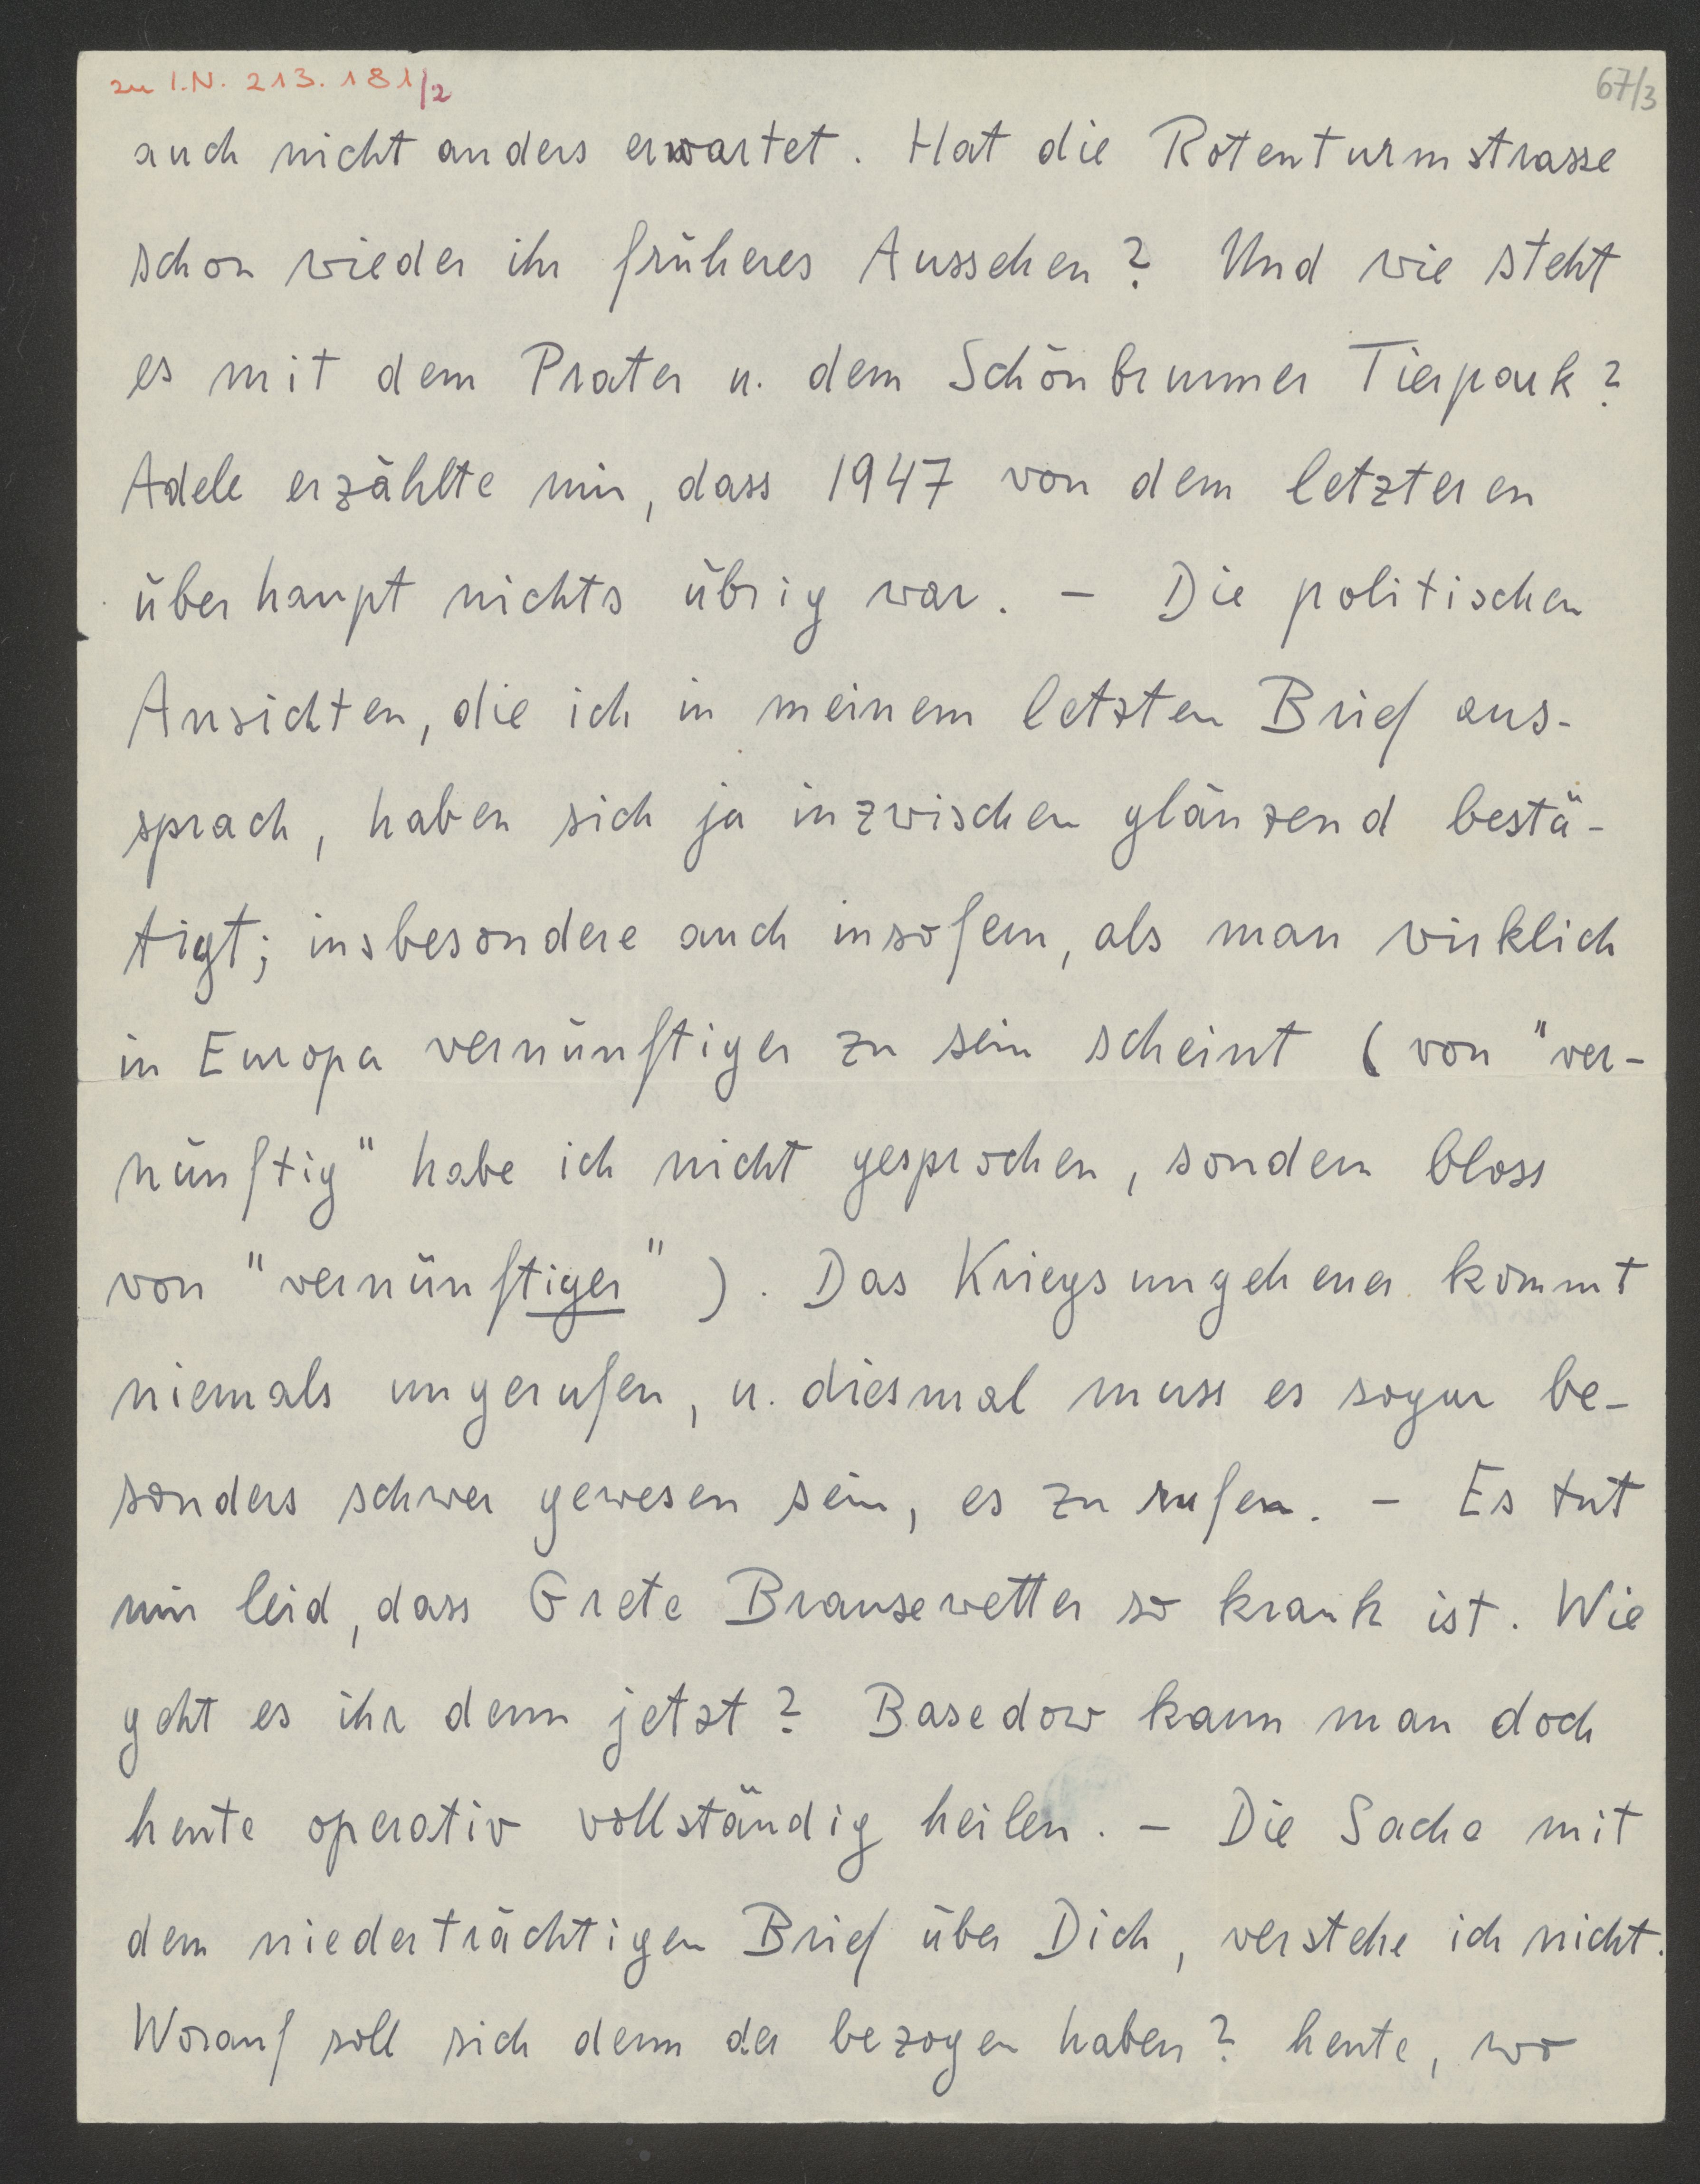 zu I.N. 213.181/2
67/3
auch nicht anders erwartet. Hat die Rotenturmstrasse
schon wieder ihr früheres Aussehen? Und wie steht
es mit dem Prater u. dem Schönbrunner Tierpark?
Adele erzählte mir, dass 1947 von dem letzteren
überhaupt nichts übrig war. – Die politischen
Ansichten, die ich in meinem letzten Brief aus-
sprach, haben sich ja inzwischen glänzend bestä-
tigt; insbesondere auch insofern, als man wirklich
in Europa vernünftiger zu sein scheint (von "ver-
nünftig" habe ich nicht gesprochen, sondern bloss
von "vernünftiger"). Das Kriegsungeheuer kommt
niemals ungerufen, u. diesmal muss es sogar be-
sonders schwer gewesen sein, es zu rufen. – Es tut
mir leid, dass Grete Brausewetter so krank ist. Wie
geht es ihr denn jetzt? Basedow kann man doch
heute operativ vollständig heilen. – Die Sache mit
dem niederträchtigen Brief über Dich, verstehe ich nicht.
Worauf soll sich denn der bezogen haben? heute, wo